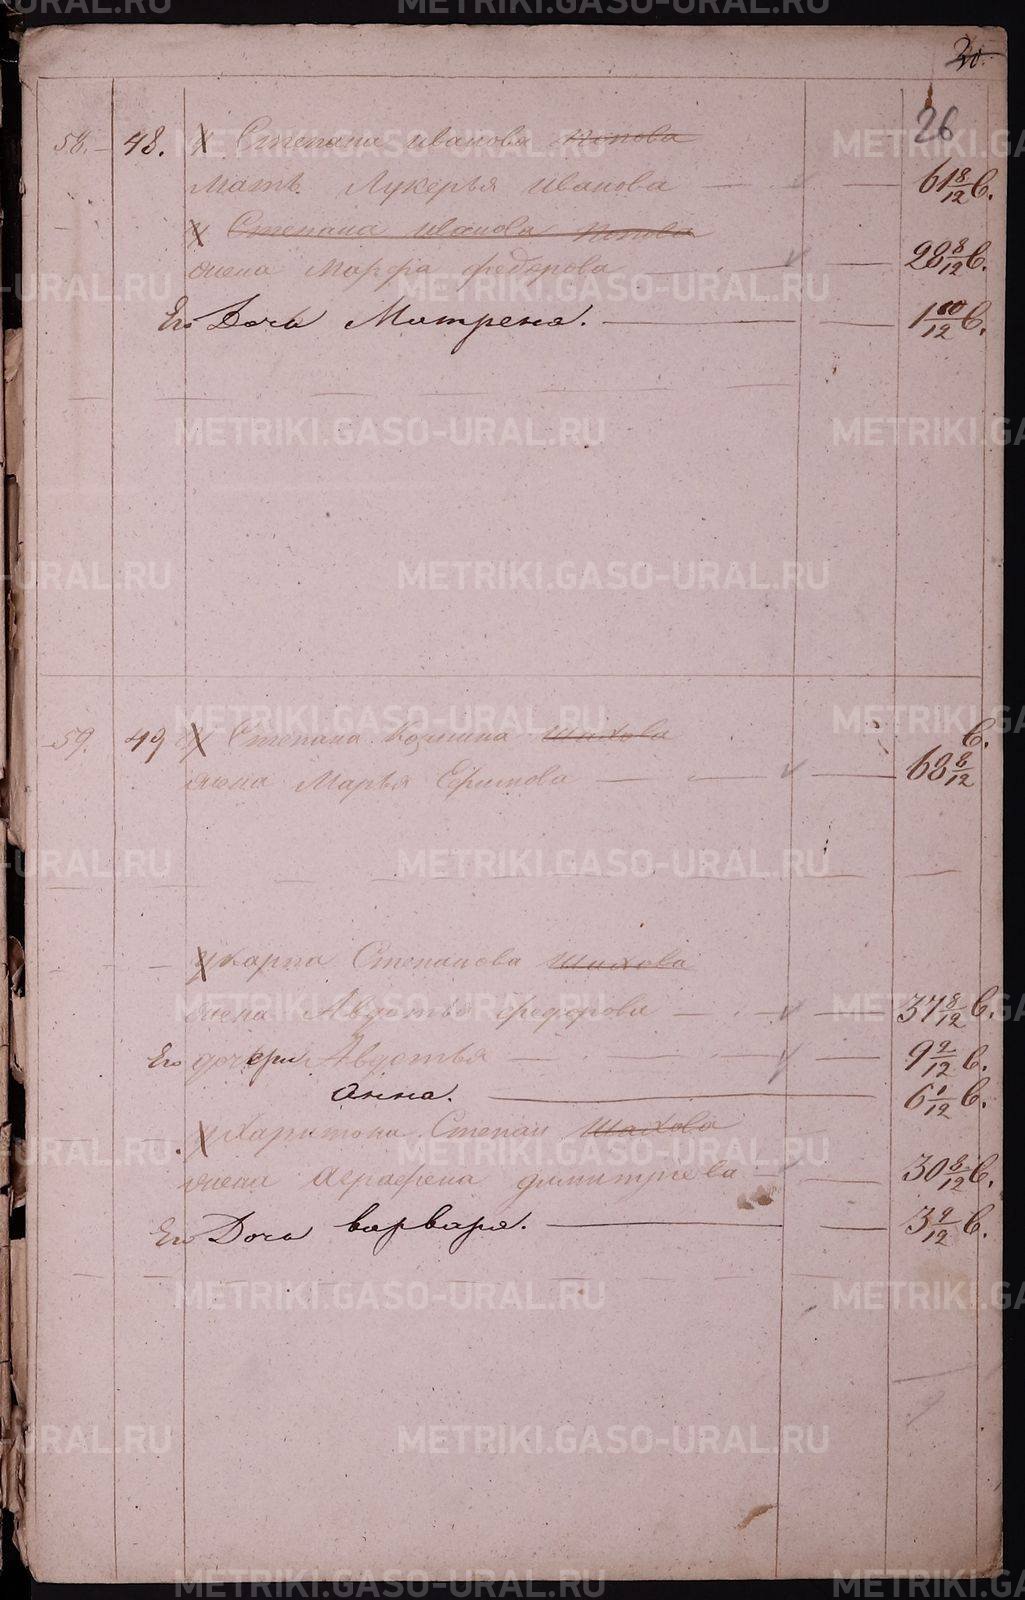 26
58. 48. У Степана иванова Попова
Мать Лукерья иванова 61 8/12 в.
У Степана иванова Попова
жена Марфа федорова 28 8/12 в.
Его Дочь Матрена. 1 10/12 в.
59. 49 У Степана Козмина Шахова
жена Марья Ефимова 68 8/12 в.
У карпа Степанова Шахова
жена Авдотья федорова 37 8/12 в.
Его дочери Авдотья 9 2/12 в.
Анна. 6 1/12 в.
У Харитона Степан Шахова
жена Аграфена димитриева 30 8/12 в.
Его Дочь варвара. 3 2/12 в.
METRIKI.GASO-URAL.RU